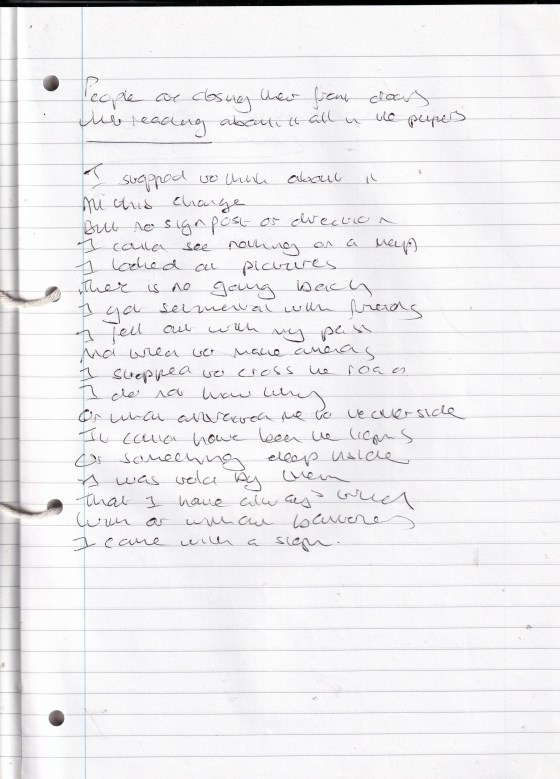 People are closing their front doors
After reading about it all in the papers
I stopped to think about it
All this change
But no signpost or direction
I could see nothing on a map
I looked at pictures
There is no going back
I got sentimental with friends
I fell out with my past
And tried to make amends
I stopped to cross the road
I do not know why
Or what attracted me to the other side
It could have been the lights
Or something deep inside
I was told by them
That I have always tried
With or without
I came with a sign.